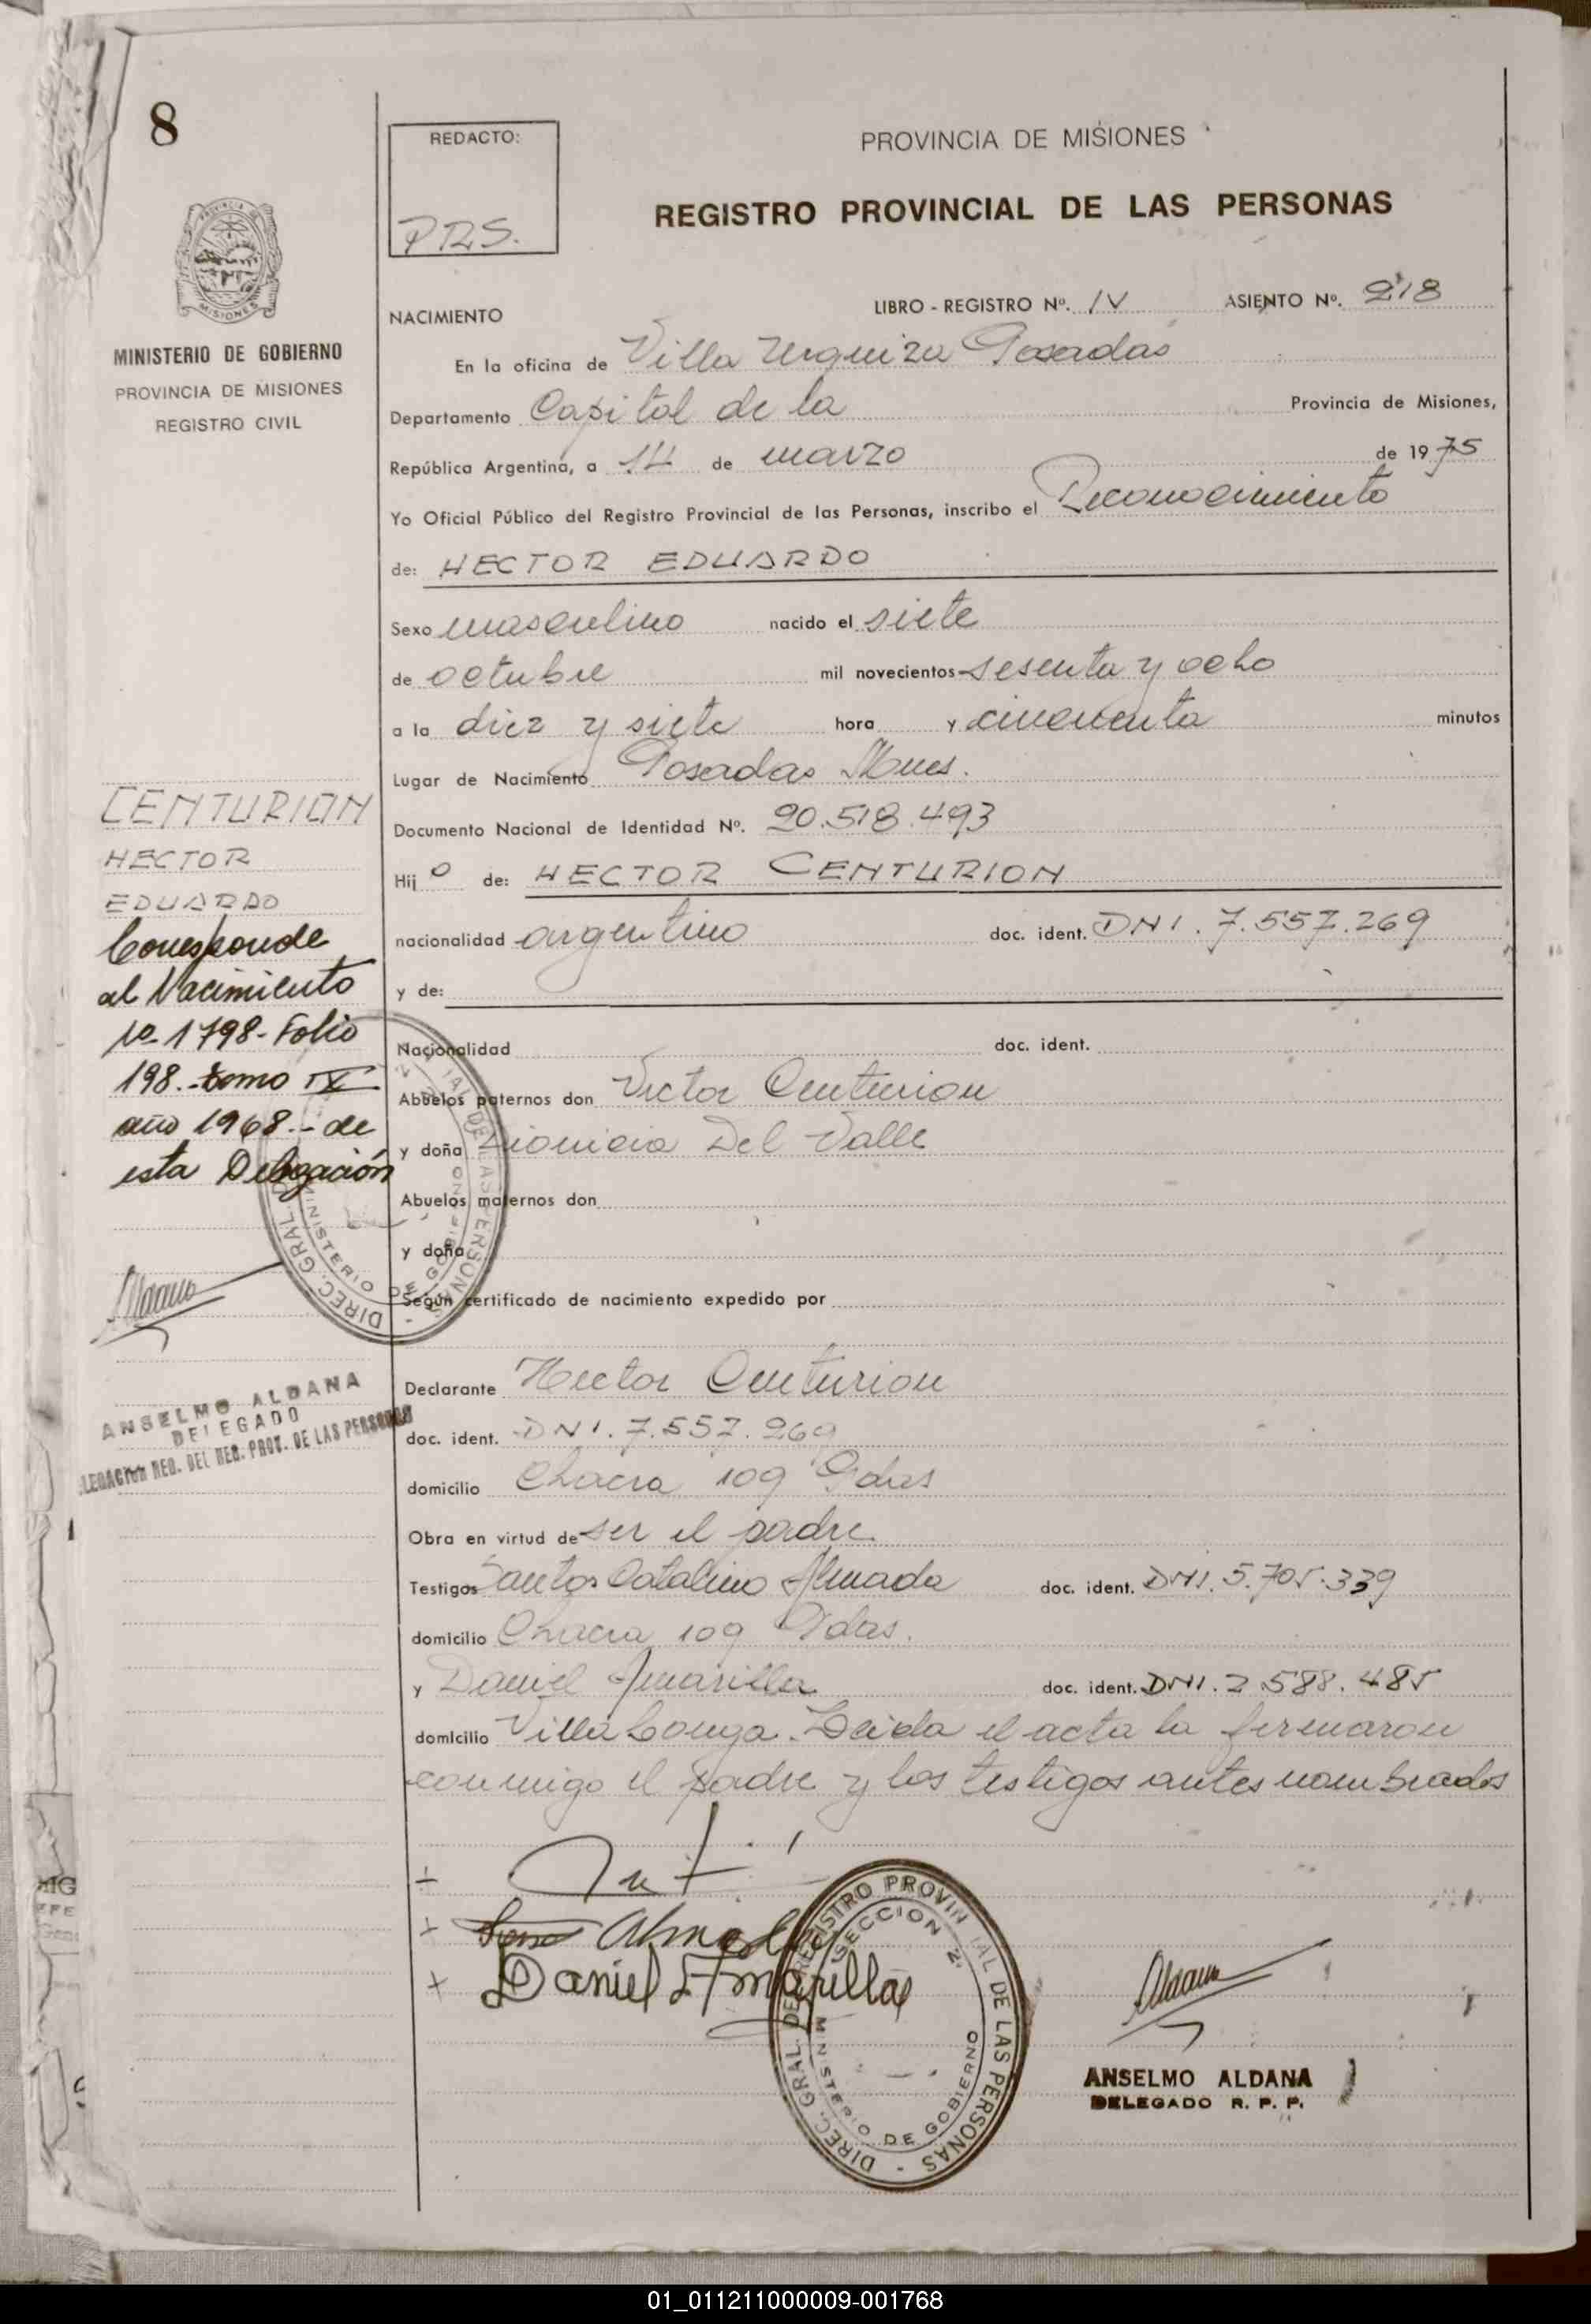 8
REDACTO:
P.R.S.
PROVINCIA DE MISIONES
REGISTRO PROVINCIAL DE LAS PERSONAS
PROVINCIA DE MISIONES
MINISTERIO DE GOBIERNO
PROVINCIA DE MISIONES
REGISTRO CIVIL
NACIMIENTO LIBRO - REGISTRO Nº. IV ASIENTO Nº. 218
En la oficina de Villa Urquiza Posadas
Departamento Capital de la Provincia de Misiones,
República Argentina, a 14 de marzo de 1975
Yo Oficial Público del Registro Provincial de las Personas, inscribo el Reconocimiento
de: HECTOR EDUARDO
Sexo masculino nacido el siete
de octubre mil novecientos sesenta y ocho
a la diez y siete hora y cincuenta minutos
Lugar de Nacimiento Posadas Mnes.
Documento Nacional de Identidad Nº. 20.518.493
Hijo de: HECTOR CENTURION
nacionalidad argentino doc. ident. DNI. 7.557.269
y de:
Nacionalidad doc. ident.
Abuelos paternos don Victor Centurion
y doña Dionicia Del Valle
Abuelos maternos don
y doña
Según certificado de nacimiento expedido por
Declarante Hector Centurion
doc. ident. DNI. 7.557.269
domicilio Chacra 109 Pdas
Obra en virtud de ser el padre
Testigos Santos Catalino Almada doc. ident. DNI. 5.705.339
domicilio Chacra 109 Pdas.
y Daniel Amarilla doc. ident. DNI. 2.588.485
domicilio Villa Longa. Leida el acta la firmaron
conmigo el padre y los testigos antes nombrados
CENTURION
HECTOR
EDUARDO
Corresponde
al Nacimiento
Nº 1798- Folio
198.- tomo IX
año 1968.- de
esta Delegación
DIREC. GRAL. DE LAS PERSONAS
MINISTERIO DE GOBIERNO
ANSELMO ALDANA
DELEGADO
DELEGACION REG. DEL REG. PROV. DE LAS PERSONAS
Almada
Daniel Amarilla
DIREC. GRAL. DE REGISTRO PROVINCIAL DE LAS PERSONAS
SECCION 2ª
MINISTERIO DE GOBIERNO
ANSELMO ALDANA
DELEGADO R. P. P.
01_011211000009-001768